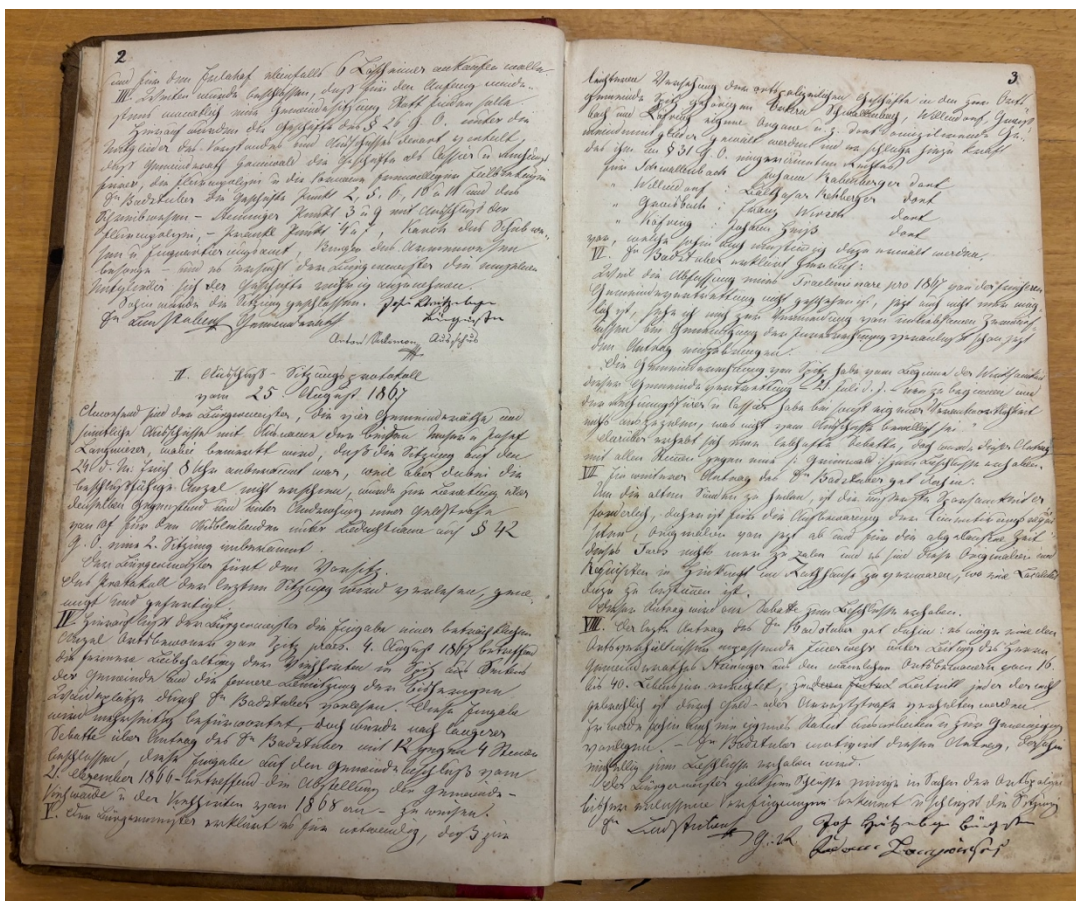 2
und für den Freihof ebenfalls 6 Löscheimer ankaufen wolle.
III. Weiters wurde beschlossen, daß für den Anfang minde-
stens monatlich eine Gemeindesitzung Statt finden solle.
Hierauf wurden die Geschäfte des § 26 G. O. unter die
Mitglieder des Vorstandes und Ausschusses derart vertheilt,
daß Gemeinderath Grünwald die Geschäfte des Cassier u. Rechnungs
führer, die Flurenpolizei u. die
Dr Badstuber die Geschäfte Punkt 2, 5, 6, 10 u 11 und das
Schreibwesen – Steininger Punkt 3 u 9 mit Ausschluß der
Flurenpolizei, – Punkt 4 u 7, das Schubwe-
sen u Einquartierungsamt, das Armenwesen
besorge – und es ersucht der Bürgermeister die einzelnen
Mitglieder sich der Geschäfte eifrig anzunehmen.
Sohin wurde die Sitzung geschlossen.
Dr Gemeinderath
Anton Ausschuß
II. Ausschuß-Sitzungsprotokoll
vom 25 August 1867
Anwesend sind der Bürgermeister, die vier Gemeinderäthe und
sämtliche Ausschüsse mit Ausname der beiden u Josef
wobei bemerkt wird, daß die Sitzung auf den
24 d. M. früh 8 Uhr anberaumt war, weil aber dabei die
beschlußfähige Anzal nicht erschien, wurde zur Berathung über
denselben Gegenstand und unter Androhung einer Geldstrafe
von für den Ausbleibenden unter Bedachtname auf § 42
G. O. eine 2. Sitzung anberaumt.
Der Bürgermeister fürt den Vorsitz.
Das Protokoll der lezten Sitzung wird verlesen, geneh-
migt und gefertigt.
IV. Hierauf läßt der Bürgermeister die Eingabe einer beträchtlichen
Anzal Ortsbewoner von Spitz praes. 4. August 1867 betreffend
die fernere Beibehaltung der Viehhirten in Spitz aus Seiten
der Gemeinde und die fernere Benützung der bisherigen
Weideplätze durch Dr Badstuber vorlesen. Diese Eingabe
wird mehrseitig befürwortet, doch wurde nach langerer
Debatte über Antrag des Dr Badstuber mit gegen 4 Stimmen
beschlossen, diese Eingabe auf den Gemeindebeschluß vom
21. Dezember 1866 – betreffend die Abstellung der Gemeinde-
Viehweide u der Viehhirten vom 1868 an – zu weisen.
V. Der Bürgermeister erklärt es für notwendig, daß zur
3.
leichteren Versehung der ortspolizeilichen Geschäfte in den zur Orts-
gemeinde Spitz gehörigen Orten Schwallenbach, Willendorf, Gros-
bach und Köfring eigene Organe u. z. dort domizilirende Ge-
meindemitglieder gewält werden und er schlage hiezu kraft
des ihm im § 31 G. O. eingeräumten Rechtes
für Schwallenbach: Johann Rabenberger dort
" Willendorf: Balthasar Rehberger dort
" : Franz dort
" Köfring: Johann dort
vor, welche sohin auch einstimmig dazu erwält werden.
VI. Dr Badstuber erklärt hierauf:
Weil die Abfassung eines Praeliminare pro 1867 von der früheren
Gemeindevertrettung nicht geschehen ist, jezt auch nicht mer mög-
lich ist, sehe er sich zur Vermeidung von unliebsamen
bei Genehmigung der Jaresrechnung veranlaßt schon jezt
den Antrag einzubringen:
"Die Gemeindevertrettung von Spitz habe vom Beginne der Wirksamkeit
dieser Gemeindevertrettung (21 Juli d. J.) neu zu beginnen und
der Rechnungsfürer u Cassier habe bei sonst eigener Verantwortlichkeit
nichts auszuzalen, was nicht vom Ausschusse bewilligt sei."
Darüber erhebt sich eine lebhafte Debatte, doch wird dieser Antrag
mit allen Stimen gegen eine (: Grünwald :) zum Beschlusse erhoben.
VII. Ein weiterer Antrag des Dr Badstuber get dahin:
Um die alten Sünden zu heilen, ist die äußerste Sparsamkeit er-
forderlich, daher ist für die Aufbewarung der Feuerlöschrequi-
siten, von jezt ab und für die abgelaufene Zeit
dieses Jars nichts mer zu zalen und es sind diese und
Requisiten in Hinkunft im Rathhause zu verwaren, wo eine Localität
dazu zu bestimen ist.
Dieser Antrag wird one Debatte zum Beschlusse erhoben.
VIII. Der lezte Antrag des Dr Badstuber get dahin: es möge eine den
Ortsverhältnissen anpassende Feuerwehr unter Leitung des Herrn
Gemeinderathes Steininger aus den männlichen Ortsbewonern vom 16.
bis 40. Lebensjar errichtet, zu deren Beitritt jeder der nicht
gebrechlich ist durch Geld- oder Arreststrafe verhalten werden.
Er werde sohin auch ein eigenes Statut ausarbeiten u zur Genemigung
vorlegen. – Dr Badstuber motivirt diesen Antrag, der sohin
einhellig zum Beschlusse erhoben wird.
Der Bürgermeister gibt zum Schlusse einige in Sachen der Ortspolizei
bisher erlassene Verfügungen bekannt u schließt die Sitzung
Dr Badstuber
G. R.